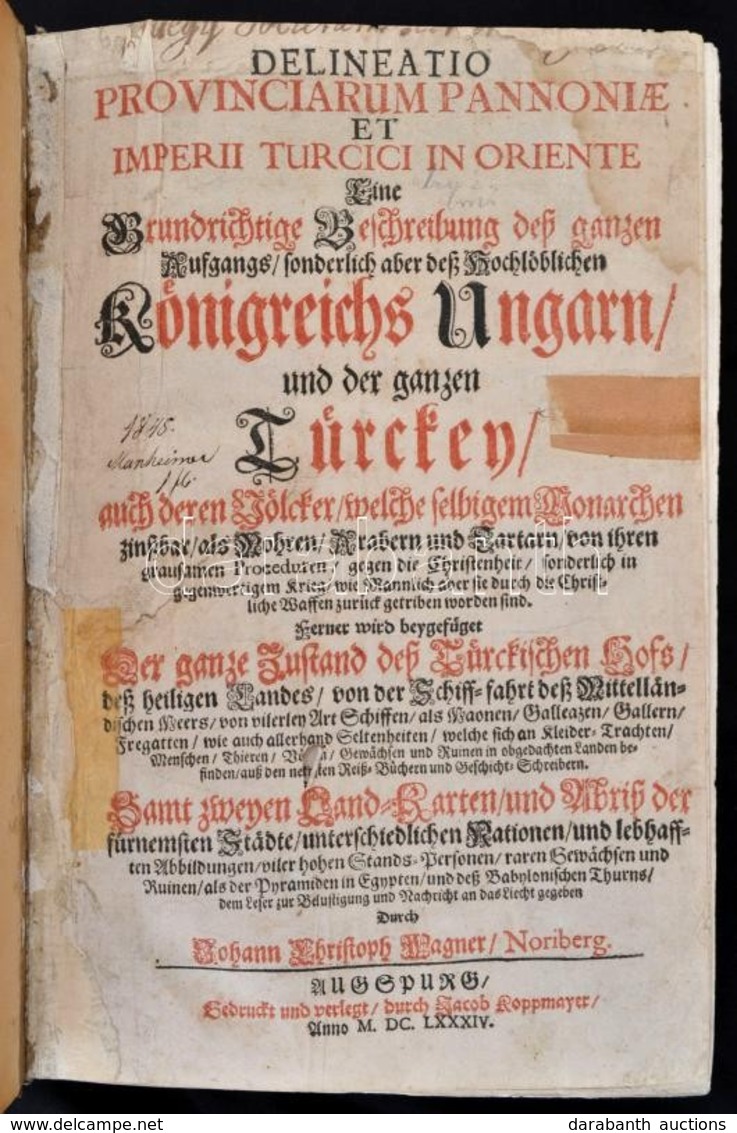 DELINEATIO
PROVINCIARUM PANNONIÆ
ET
IMPERII TURCICI IN ORIENTE
Eine
Grundrichtige Beschreibung deß ganzen
Aufgangs/ sonderlich aber deß Hochlöblichen
Königreichs Ungarn/
und der ganzen
Türckey/
1845.
Manheimer
auch deren Völcker/welche selbigem Monarchen
zinßbar/als Mohren/ Arabern und Tartarn/von ihren
grausamen Proceduren/ gegen die Christenheit/ sonderlich in
gegenwertigem Krieg/ wie Mannlich aber sie durch die Christ-
liche Waffen zurück getriben worden sind.
Ferner wird beygefüget
Der ganze Zustand deß Türckischen Hofs/
deß heiligen Landes/ von der Schiff-fahrt deß Mittellän-
dischen Meers/ von vilerley Art Schiffen/ als Maonen/ Galleazen/ Gallern/
Fregatten/ wie auch allerhand Seltenheiten/ welche sich an Kleider-Trachten/
Menschen/ Thieren/ Gewächsen und Ruinen in obgedachten Landen be-
finden/ auß den Reiß-Büchern und Geschicht-Schreibern.
Samt zweyen Land-Karten/und Abriß der
fürnemsten Städte/unterschiedlichen Nationen/und lebhaff-
ten Abbildungen/viler hohen Stands-Personen/ raren Gewächsen und
Ruinen/als der Pyramiden in Egypten/und deß Babylonischen Thurns/
dem Leser zur Belustigung und Nachricht an das Liecht gegeben
Durch
Johann Christoph Wagner/ Noriberg.
AUGSPURG/
Gedruckt und verlegt/ durch Jacob Koppmayer/
Anno M. DC. LXXXIV.
darabanth auctions